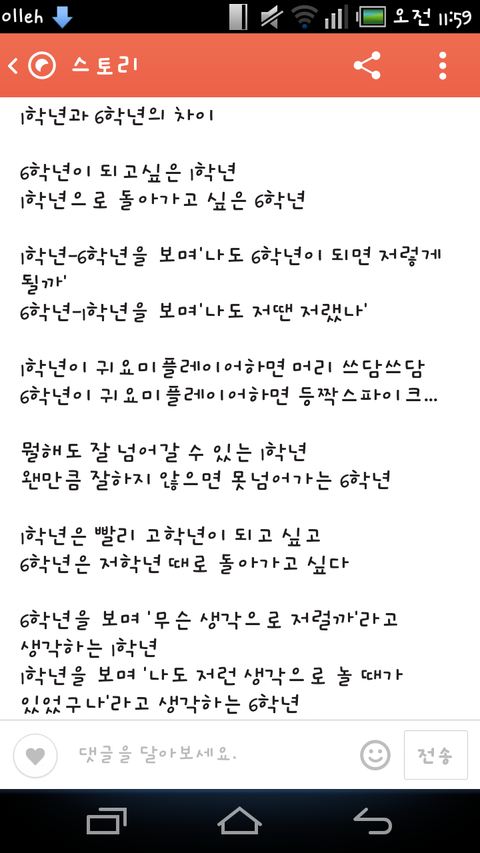 olleh 오전 11:59
스토리
1학년과 6학년의 차이
6학년이 되고싶은 1학년
1학년으로 돌아가고 싶은 6학년
1학년-6학년을 보며'나도 6학년이 되면 저렇게
될까'
6학년-1학년을 보며'나도 저땐 저랬나'
1학년이 귀요미플레이어하면 머리 쓰담쓰담
6학년이 귀요미플레이어하면 등짝스파이크...
뭘해도 잘 넘어갈 수 있는 1학년
왠만큼 잘하지 않으면 못넘어가는 6학년
1학년은 빨리 고학년이 되고 싶고
6학년은 저학년 때로 돌아가고 싶다
6학년을 보며 '무슨 생각으로 저럴까'라고
생각하는 1학년
1학년을 보며 '나도 저런 생각으로 놀 때가
있었구나'라고 생각하는 6학년
댓글을 달아보세요.
전송